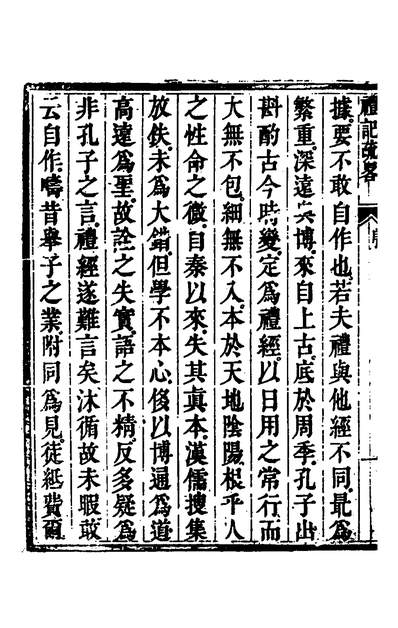 禮記疏畧
據要不敢自作也若夫禮與他經不同最爲
繁重深遠奥博來自上古底於周季孔子出
斟酌古今時變定爲禮經以日用之常行而
大無不包細無不入本於天地陰陽根乎人
之性命之微自秦以來失其真本漢儒搜集
放佚未爲大錯但學不本心俊以博通爲道
高遠爲聖故詮之失實語之不精反多疑爲
非孔子之言禮經遂難言矣沐循故未暇敢
云自作疇昔舉子之業附同爲見徒紙費爾